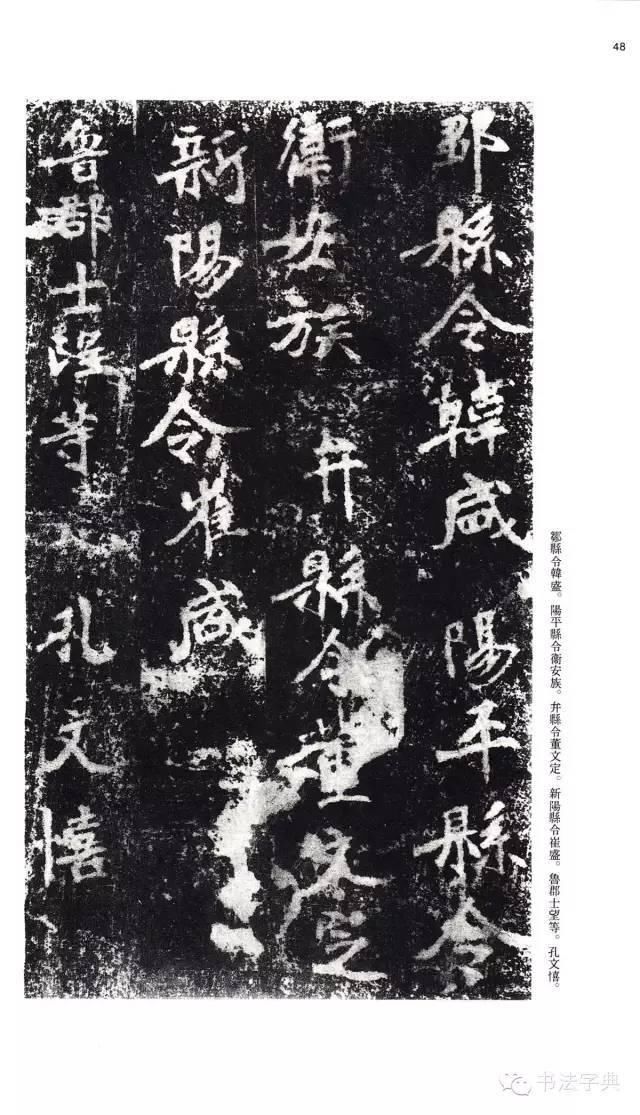 48
鄒縣令韓盛陽平縣令
衞安族弁縣令董文定
新陽縣令崔盛
魯郡士望等孔文憘
鄒縣令韓盛。陽平縣令衞安族。弁縣令董文定。新陽縣令崔盛。魯郡士望等。孔文憘。
书法字典